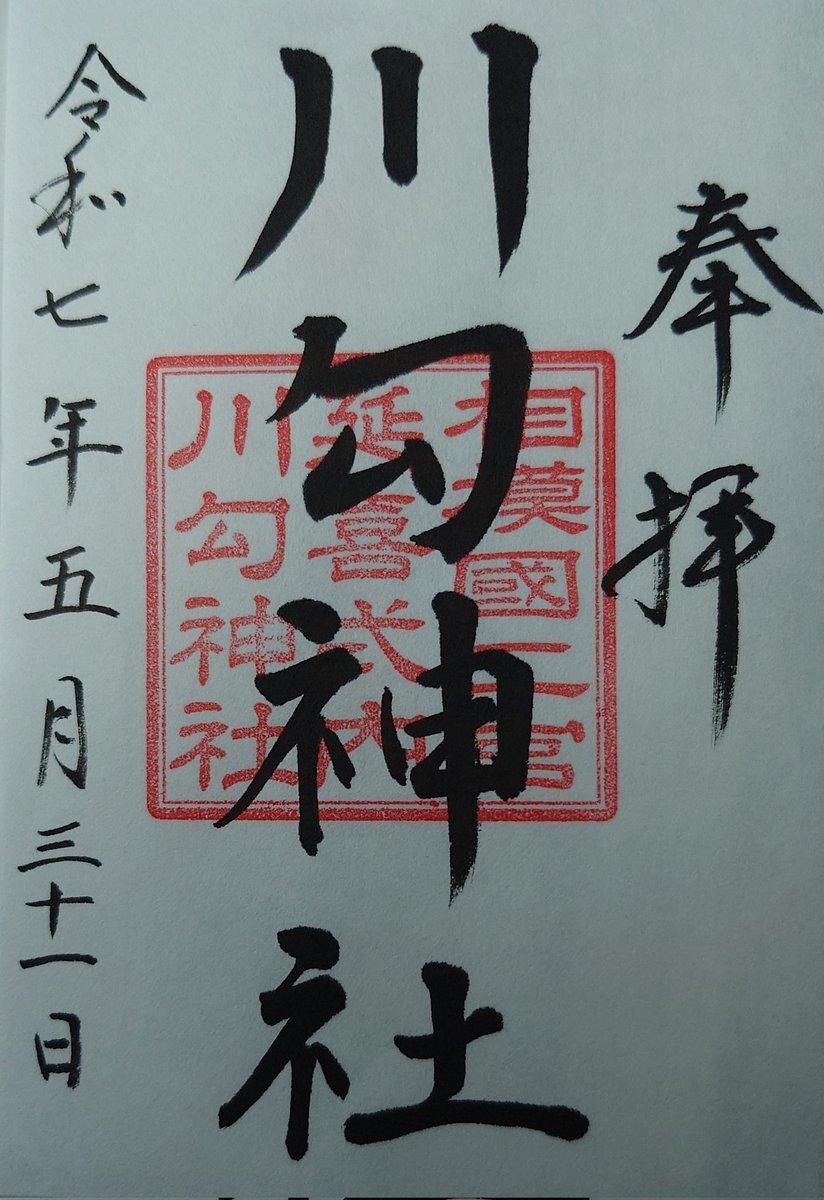 奉拝
相模國二宮
延喜式内
川勾神社
川勾神社
令和七年五月三十一日